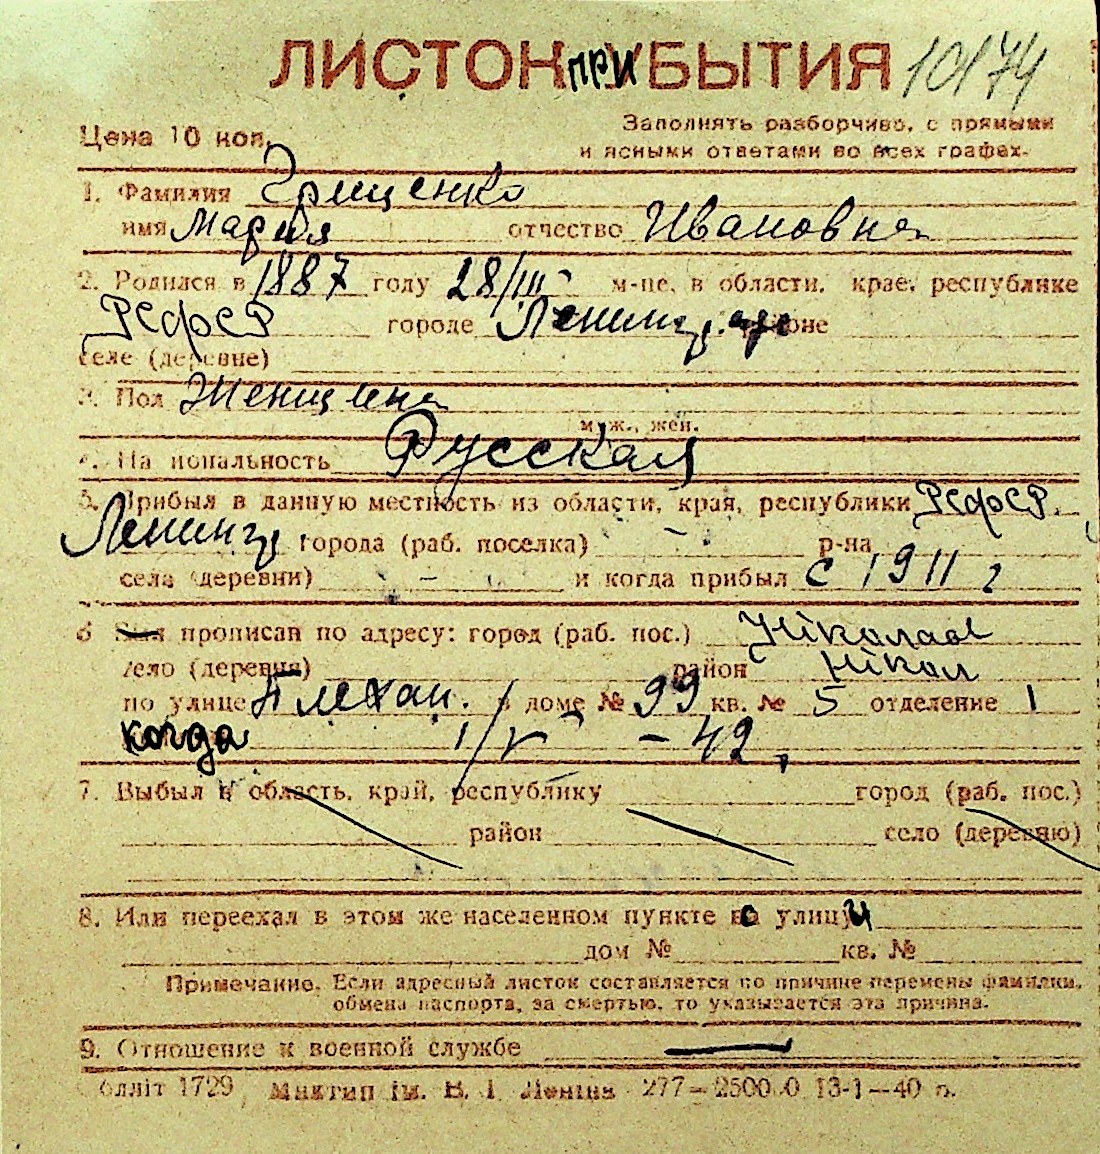 ЛИСТОК ПРИБЫТИЯ 10174
Цена 10 коп. Заполнять разборчиво, с прямыми
и ясными ответами во всех графах.
1. Фамилия Грищенко
имя Мария отчество Ивановна
2. Родился в 1887 году 28/III м-це, в области, крае, республике
РСФСР городе Ленинград районе
селе (деревне)
3. Пол Женщина
муж., жен.
4. Национальность Русская
5. Прибыл в данную местность из области, края, республики РСФСР.
Ленингр. города (раб. поселка) - р-на
села (деревни) - и когда прибыл с 1911 г
6 Был прописан по адресу: город (раб. пос.) Николаев
село (деревня) район Никол
по улице Плехан. в доме № 99 кв. № 5 отделение 1
когда 1/V - 42,
7. Выбыл в область, край, республику город (раб. пос.)
район село (деревню)
8. Или переехал в этом же населенном пункте с улицы
дом № кв. №
Примечание. Если адресный листок составляется по причине перемены фамилии,
обмена паспорта, за смертью, то указывается эта причина.
9. Отношение к военной службе —
Облліт 1729 Миктип ім. В. І Леніна 277—25000 13-1—40 р.